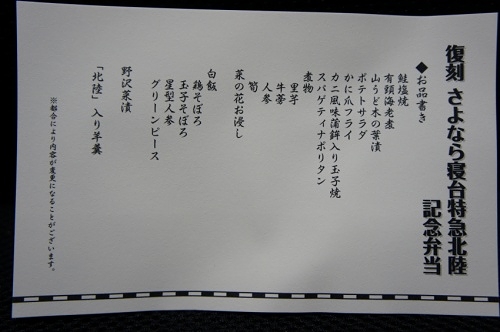 復刻 さよなら寝台特急北陸
記念弁当
◆お品書き
鮭塩焼
有頭海老煮
山うど木の葉漬
ポテトサラダ
かに爪フライ
カニ風味蒲鉾入り玉子焼
スパゲティナポリタン
煮物
里芋
牛蒡
人参
筍
菜の花お浸し
白飯
鶏そぼろ
玉子そぼろ
星型人参
グリーンピース
野沢菜漬
「北陸」入り羊羹
※都合により内容が変更になることがございます。